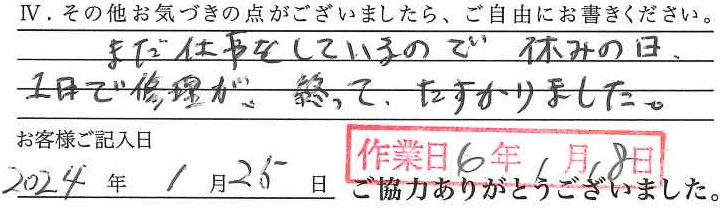 Ⅳ．その他お気づきの点がございましたら、ご自由にお書きください。
まだ仕事をしているので 休みの日、
1日で修理が、終って、たすかりました。
お客様ご記入日
作業日6年1月18日
2024年1月25日 ご協力ありがとうございました。